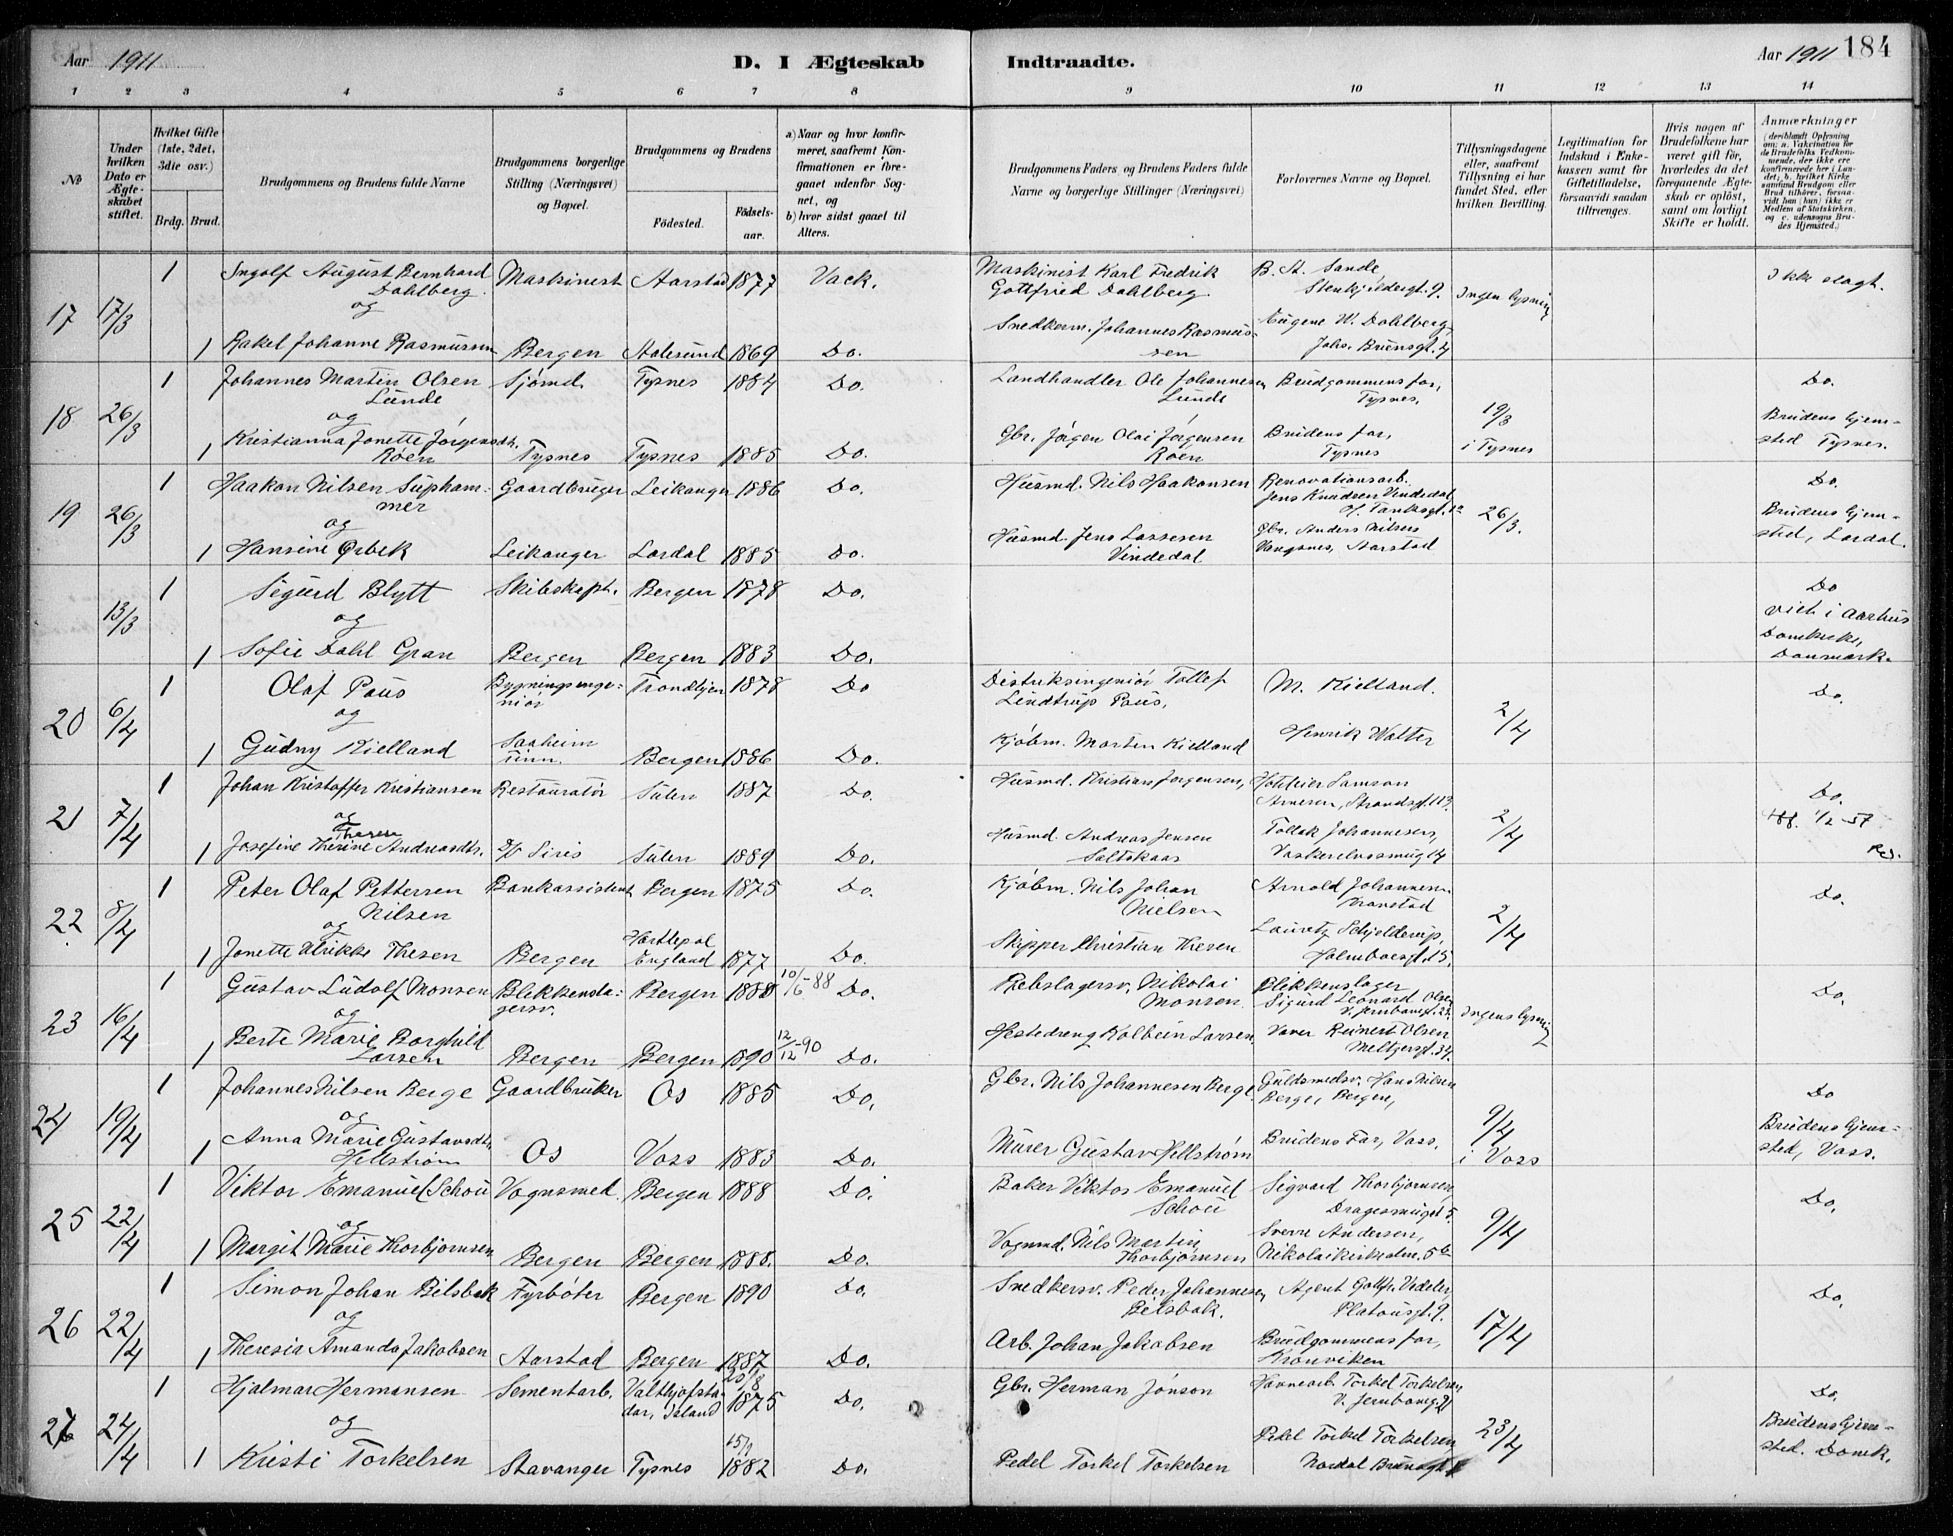 Aar 1911
D. I Ægteskab Indtraadte.
Aar 1911 184
1 2 3 4 5 6 7 8 9 10 11 12 13 14
No
Under hvilken Dato er Ægteskabet stiftet.
Hvilket Gifte (1ste, 2det, 3die osv.)
Brdg. Brud.
Brudgommens og Brudens fulde Navne
Brudgommens borgerlige Stilling (Næringsvei) og Bopæl.
Brudgommens og Brudens
Fødested.
Fødselsaar.
a) Naar og hvor konfirmeret, saafremt Konfirmationen er foregaaet udenfor Sognet, og
b) hvor sidst gaaet til Alters.
Brudgommens Faders og Brudens Faders fulde Navne og borgerlige Stillinger (Næringsvei)
Forlovernes Navne og Bopæl.
Tillysningsdagene eller, saafremt Tillysning ei har fundet Sted, efter hvilken Bevilling.
Legitimation for Indskud i Enkekassen samt for Giftetilladelse, forsaavidt saadan tiltrænges.
Hvis nogen af Brudefolkene har været gift før, hvorledes da det foregaaende Ægteskab er opløst, samt om lovligt Skifte er holdt.
Anmærkninger (deriblandt Oplysning om: a. Vakcination for de Brudefolks Vedkommende, der ikke ere konfirmerede her i Landet; b. hvilket Kirkesamfund Brudgom eller Brud tilhører, forsaavidt han (hun) ikke er Medlem af Statskirken, og c. udensogns Brudes Hjemsted.)
17 17/3 1 Ingolf August Bernhard Dahlberg Maskinest Aarstad 1877 Vack. Maskinist Karl Fredrik Gottfried Dahlberg B. St. Sande, 9. Ingen lysning Ikke slagt.
og
1 Rakel Johanne Rasmussen Bergen Aalesund 1869 Do. Snedkerm. Johannes Rasmussen Eugene W. Dahlberg, Johs. Brunsgt. 4
18 26/3 1 Johannes Martin Olsen Lunde Sjømd. Tysnes 1884 Do. Landhandler Ole Johannesen Lunde Brudgommens far, Tysnes, 19/3 i Tysnes Do.
og
1 Kristianna Jonette Jørgensdtr. Røen Tysnes Tysnes 1885 Do. Gbr. Jørgen Olai Jørgensen Røen Brudens far, Tysnes Brudens hjemsted Tysnes.
19 26/3 1 Haakon Nilsen Suphammer Gaardbruger Leikanger 1886 Do. Husmd. Nils Haakonsen Renovationsarb. Jens Knudsen Vindedal 26/3. Do.
og
1 Hansine Ørbek Leikanger Lærdal 1885 Do. Husmd. Jens Lassesen Vindedal Gbr. Anders Nilsen Vangsnes, Aarstad Brudens hjemsted, Lærdal.
13/3 1 Sigurd Blytt Skibskapt. Bergen 1878 Do. Do viet i Aarhus Domkirke, Danmark.
og
1 Sofie Dahl Gran Bergen Bergen 1883 Do.
20 6/4 1 Olaf Paus Bygningsingeniør Trondhjem 1878 Do Distriksingeniør Tollef Lindtrup Paus, M. Kielland. 2/4 Do.
og
1 Gudny Kielland Saaheim Bergen 1886 Do. Kjøbm. Morten Kielland Henrik Walter
21 7/4 1 Johan Kristoffer Kristiansen Restauratør Sulen 1887 Do. Husmd. Kristian Jørgensen, Hotleier Samson Arnesen, Strandgt. 2/4 Do.
og
Therese
1 Josefine Therine Andreasdtr. D/S Siris Sulen 1889 Do. Husmd. Andreas Jensen Saltskaar Tollak Johannesen, 14 1/2-57
22 8/4 1 Peter Olaf Pettersen Nilsen Bankassistent Bergen 1875 Do. Kjøbm. Nils Johan Nielsen Arnold Johannesen 2/4 Do.
og
1 Jonette Ulrikke Thesen Bergen Hartlepol England 1877 Do. Skipper Christian Thesen Lauretz Schjelderup, Holmboesgt. 15.
23 16/4 1 Gustav Ludolf Monsen Blekkenslagersv. Bergen 1888 10/6-88 Do. Rebslagersv. Nikolai Monsen Blikkenslager Sigurd Leonard Olsen V. Jernbanegt. 23. Ingen lysning Do.
og
1 Berte Marie Borghild Larsen Bergen Bergen 1890 12/12-90 Do. Hestedreng Kolbein Larsen, Reinert Olsen Meltzersgt. 34.
24 19/4 1 Johannes Nilsen Berge Gaardbruker Os 1885 Do. Gbr. Nils Johannesen Berge Guldsmedsv. Hans Nilsen Berge, Bergen, 9/4 i Voss Do
og
1 Anna Marie Gustavsdtr. Hellstrøm Os Voss 1883 Do. Murer Gustav Hellstrøm Brudens Far, Voss. Brudens hjemsted, Voss.
25 22/4 1 Viktor Emanuel Schou Vognsmed. Bergen 1888 Do. Baker Viktor Emanuel Schou Sigvard Thorbjørnsen, Dragesmuget 5. 9/4 Do,
og
1 Margit Marie Thorbjørnsen Bergen Bergen 1888. Do. Vognmd. Nils Martin Thorbjørnsen Sverre Andersen, Nikolaikirkealm. 5b
26 22/4 1 Simon Johan Bilsbak Fyrbøter Bergen 1890 Do. Snedkersv. Peder Johannesen Bilsbak. Agent Gottfr. Vedeler, Platousgt. 9. 17/4 Do,
og
1 Theresie Amanda Jakobsen Aarstad Bergen 1887 Do. Arb. Johan Jakobsen Brudgommens far, Kronviken
27 24/4 1 Hjalmar Hermansen Sementarb. Valthjofstadar, Island 25/8 1875 Do. Gbr. Herman Jónson Havnearb. Torkel Torkelsen V. Jernbaneg. 21 23/4 Do,
og
1 Kristi Torkelsen Stavanger Tysnes 15/9 1882 Do. Pedel Torkel Torkelsen Pedel Torkel Torkelsen Nordal Brunsgt. Brudens hjemsted. Domk.